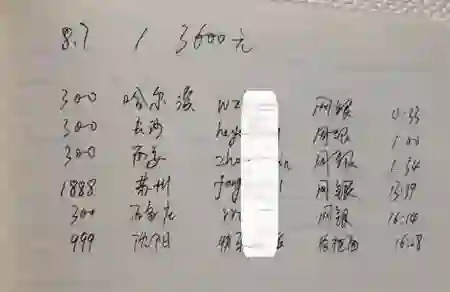 8.7 1 3600元
300 哈尔滨 wz 网银
300 长沙 he 网银 1:00
300 西安 zha n 网银 1:34
1888. 苏州 fang 网银 13:39
300 石家庄 网银 16:14
999 沈阳 16:28